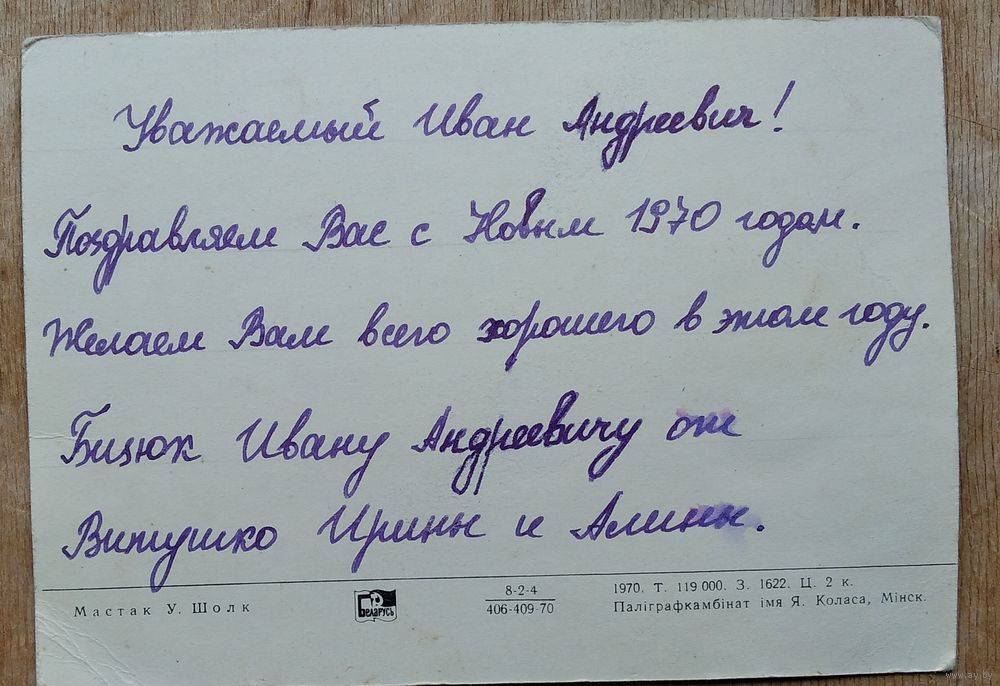 Уважаемый Иван Андреевич!
Поздравляем Вас с Новым 1970 годом.
Желаем Вам всего хорошего в этом году.
Бизюк Ивану Андреевичу от
Витушко Ирины и Алины.
Мастак У. Шолк
Беларусь
8-2-4
406-409-70
1970. Т. 119 000. З. 1622. Ц. 2 к.
Паліграфкамбінат імя Я. Коласа, Мінск.
www.ay.by